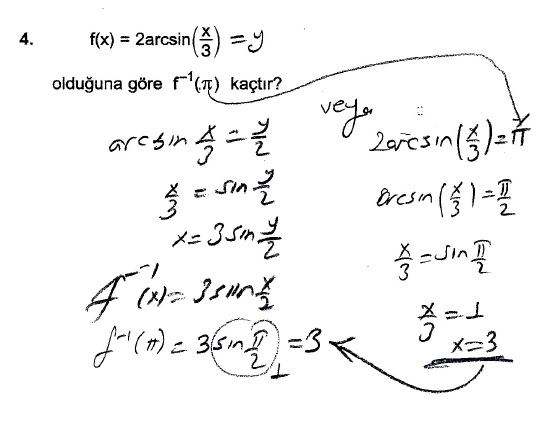 4. f(x) = 2arcsin(x/3) = y
olduğuna göre f⁻¹(π) kaçtır?
arcsin x/3 = y/2
x/3 = sin y/2
x = 3 sin y/2
f⁻¹(x) = 3 sin x/2
f⁻¹(π) = 3 sin π/2 = 3
1
veya
2arcsin(x/3) = π
arcsin(x/3) = π/2
x/3 = sin π/2
x/3 = 1
x = 3